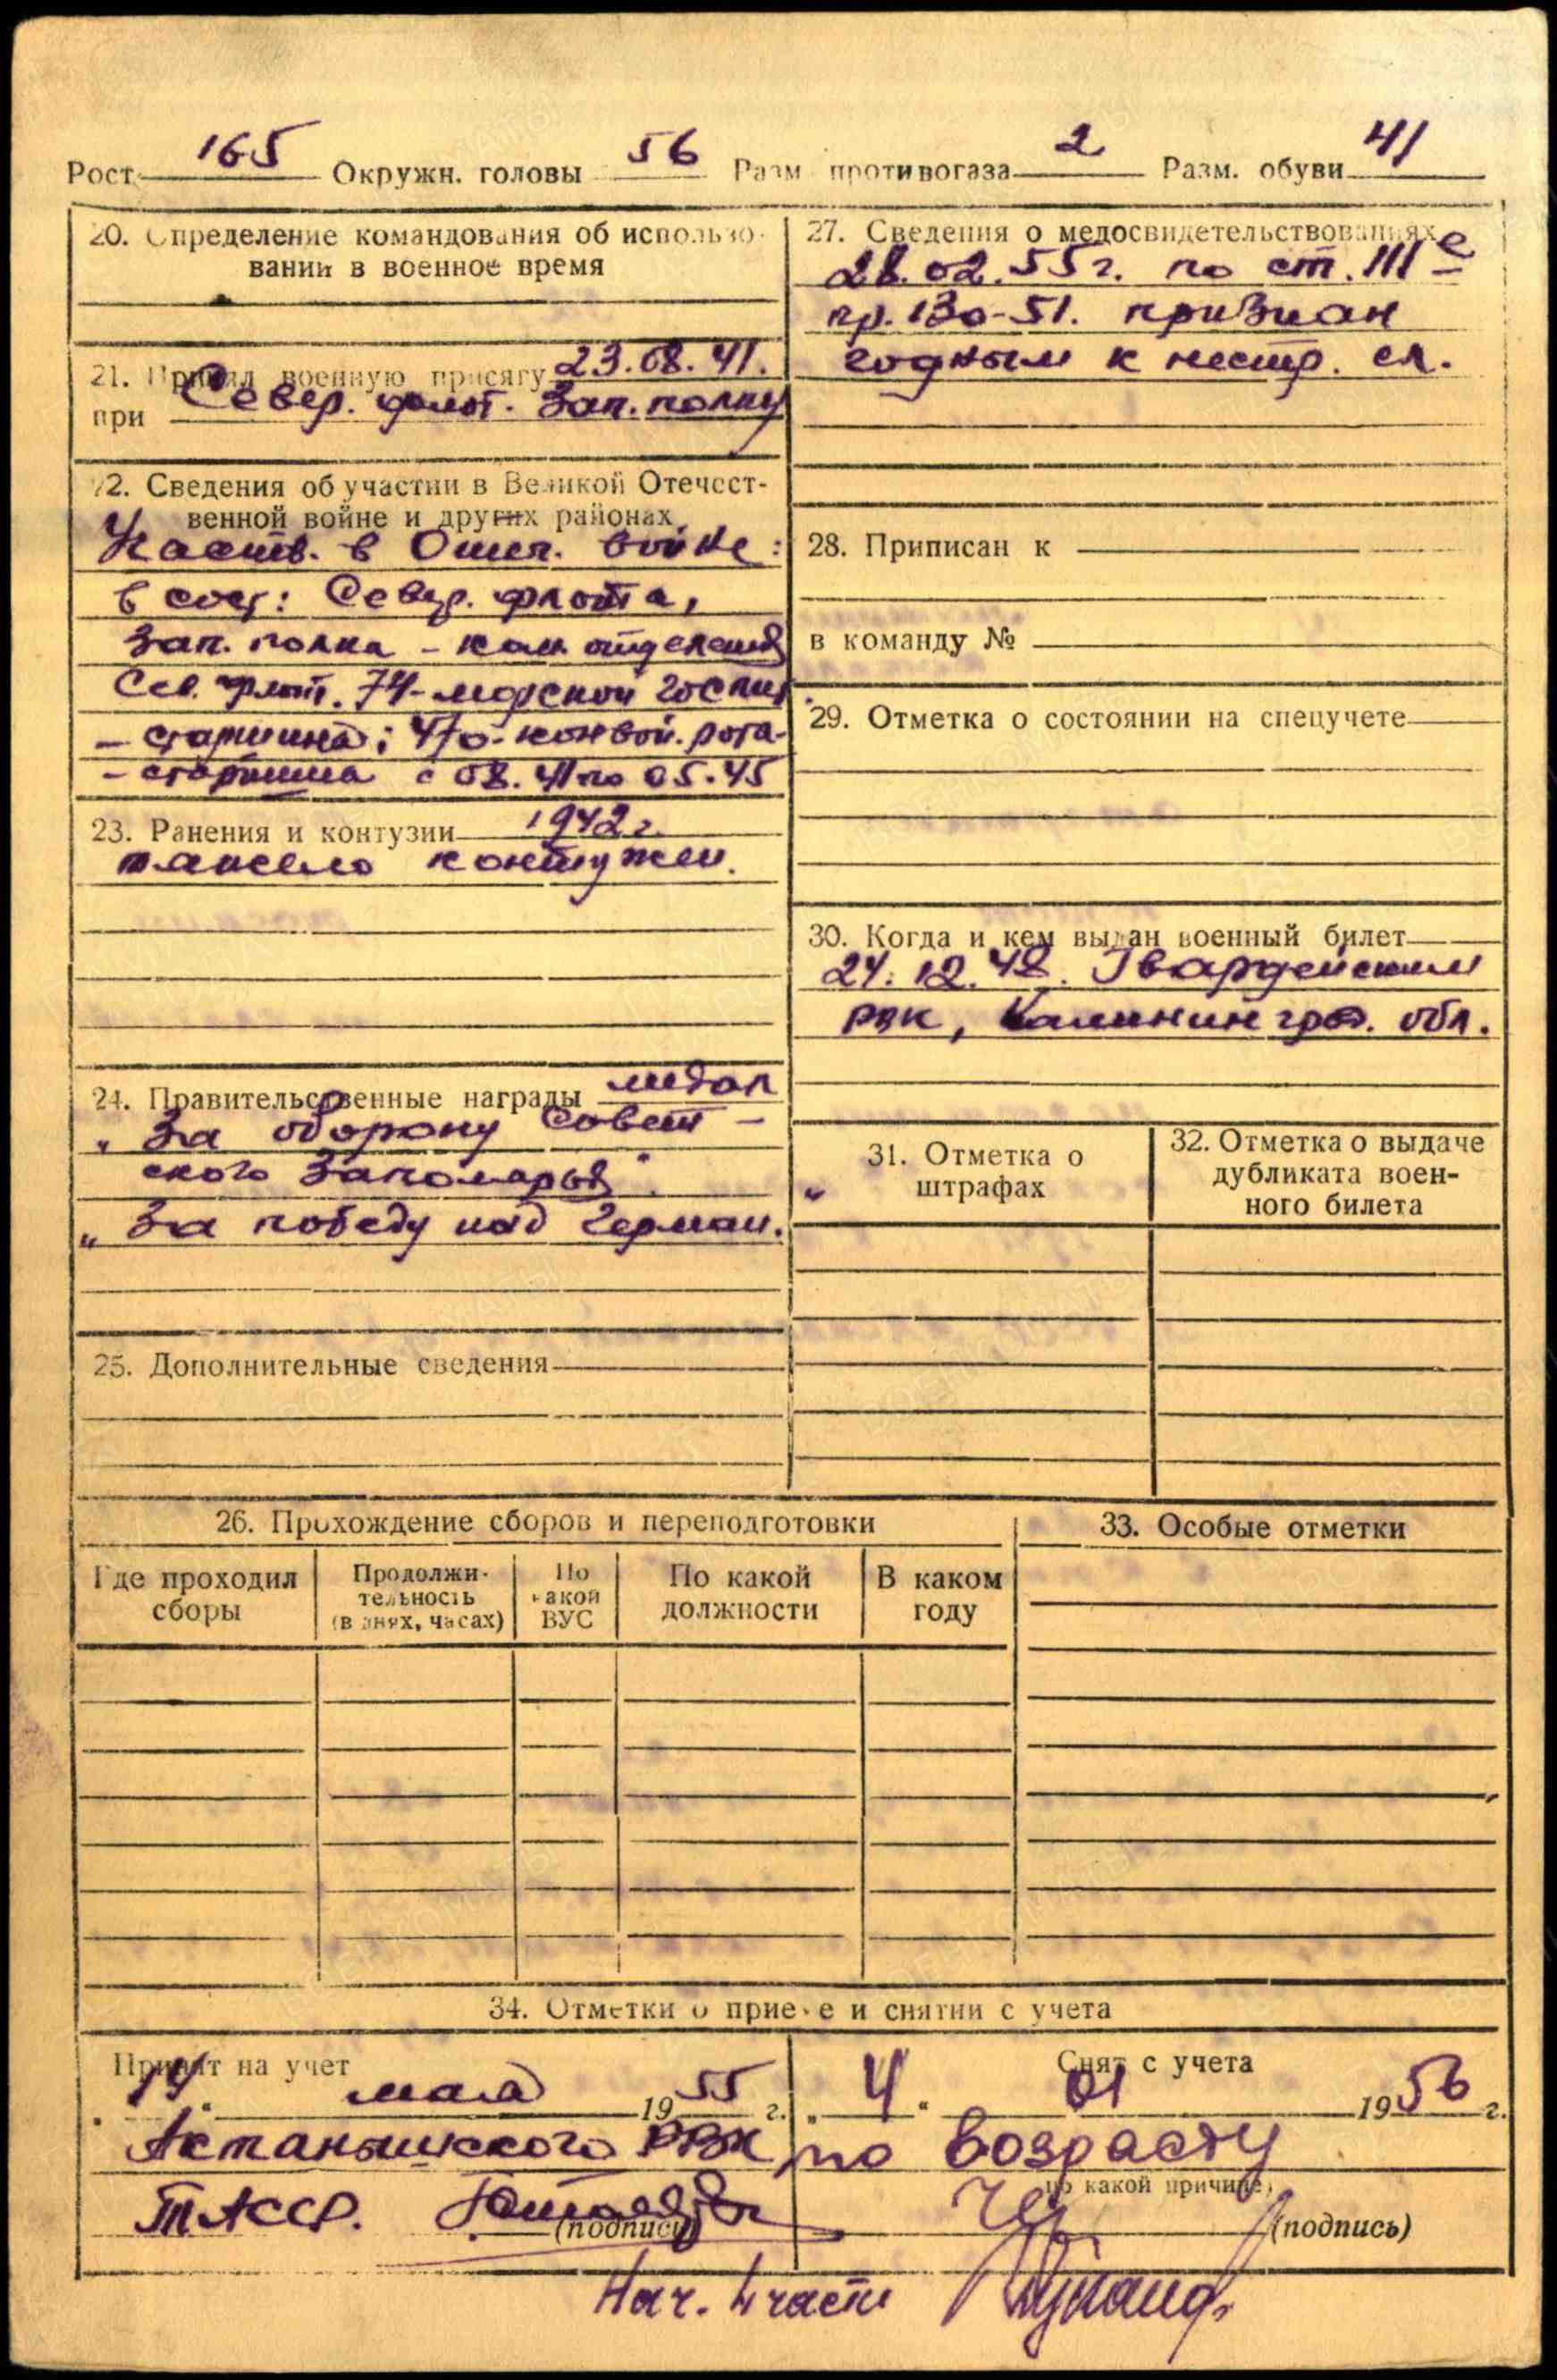 Рост 165 Окружн. головы 56 Разм противогаза 2 Разм. обуви 41
20. Определение командования об использо-
вании в военное время
21. Принял военную присягу 23.08.41.
при Север. флот. Зап. полку
22. Сведения об участии в Великой Отечест-
венной войне и других районах
Участв. в Отеч. войне:
в сост: Север. флота,
Зап. полка - ком. отделения
Сев. флот. 74-морской госпит
- старшина; 470-конвой. рота-
- старшина с 08.41 по 05.45
23. Ранения и контузии 1942 г.
тяжело контужен.
24. Правительственные награды медал
"За оборону Совет-
ского Заполярья"
"За победу над Герман.
25. Дополнительные сведения
27. Сведения о медосвидетельствованиях
28.02.55 г. по ст. III е
пр. 130-51. признан
годным к нестр. сл.
28. Приписан к
в команду №
29. Отметка о состоянии на спецучете
30. Когда и кем выдан военный билет
24.12.48. Гвардейским
РВК, Калинингрд. обл.
31. Отметка о
штрафах
32. Отметка о выдаче
дубликата воен-
ного билета
26. Прохождение сборов и переподготовки
Где проходил
сборы
Продолжи-
тельность
(в днях, часах)
По
какой
ВУС
По какой
должности
В каком
году
33. Особые отметки
34. Отметки о приеме и снятии с учета
Принят на учет
"14" мая 1955 г.
Актанышского РВК
ТАССР.
(подпись)
Снят с учета
"4" 01 1956 г.
по возрасту
(по какой причине)
(подпись)
Нач. 4 части